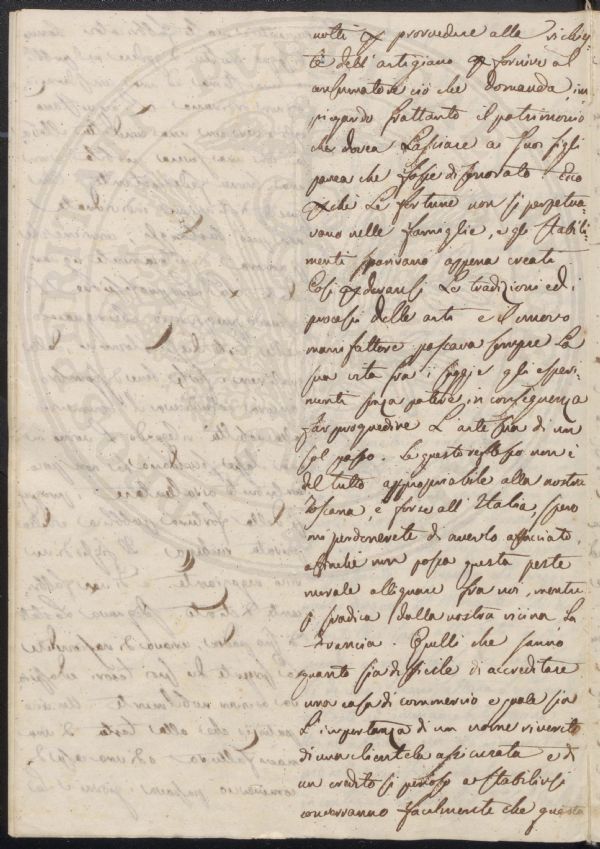 molti per provvedere alle richie-
te dell'artigiano per fornire al
consumatore ciò che domanda, im
piegando frattanto il patrimonio
che dovea lasciare a suoi figli
parea che fosse disonorato. Ecco
perché le fortune non si perpetua
vano nelle famiglie, e gli stabili-
menti sparivano appena creati.
Così perdevansi le tradizioni ed i
processi delle arti e il nuovo
manifattore passava sempre la
sua vita fra i saggi e gli esperi-
menti senza potere in conseguenza
far progredire l'arte sua di un
sol passo. Se questo riflesso non è
del tutto appropriabile alla nostra
Toscana, e forse all'Italia, spero
mi perdonerete di averlo affacciato,
affinché non possa questa peste
morale allignare fra noi, mentre
si sradica dalla nostra vicina la
Francia. Quelli che sanno
quanto sia difficile di accreditare
una casa di commercio e quale sia
l'importanza di un nome riverito
di una clientela assicurata e di
un credito si penoso a stabilirsi
converranno facilmente che questa